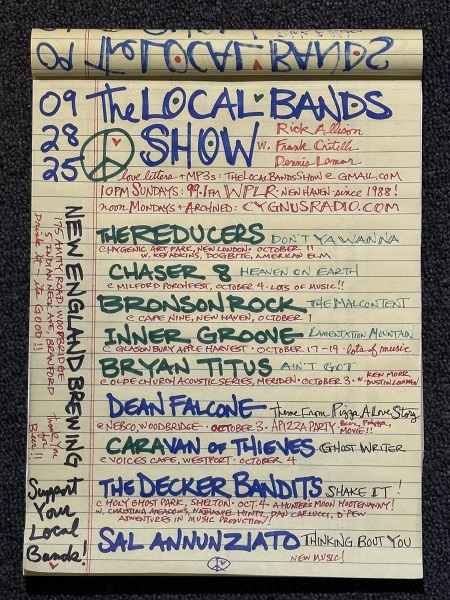 The LOCAL BANDS
09 The LOCAL BANDS
28 SHOW Rick Allison
25 w. Frank Critelli
Dennis Lamar
love letters + MP3s: THELOCALBANDSSHOW@GMAIL.COM
10PM SUNDAYS: 99.1FM WPLR · NEW HAVEN · since 1988!
noon MONDAYS + ARCHIVED: CYGNUSRADIO.COM
THE REDUCERS DON'T YA WANNA
@ HYGENIC ART PARK, NEW LONDON · OCTOBER 11
W. KEN ADKINS, DOGBITE, AMERICAN ELM
CHASER 8 HEAVEN ON EARTH
@ MILFORD PORCHFEST, OCTOBER 4 · LOTS OF MUSIC!!
BRONSON ROCK THE MALCONTENT
@ CAFE NINE, NEW HAVEN, OCTOBER 1
INNER GROOVE LAMENTATION MOUNTAIN
@ GLASONBURY APPLE HARVEST · OCTOBER 17-19 · lots of music
BRYAN TITUS AIN'T GOT
@ OLDE CHURCH ACOUSTIC SERIES, MERIDEN · OCTOBER 3 · w. KEN MORR,
DEAN FALCONE Theme From Pizza, A Love Story
@ NEBCO, WOODBRIDGE · OCTOBER 3 · APIZZA PARTY Beer, Pizza,
MOVIE!!
CARAVAN OF THIEVES GHOST WRITER
@ VOICES CAFE, WESTPORT · OCTOBER 4
THE DECKER BANDITS SHAKE IT!
@ HOLY GHOST PARK, SHELTON · OCT. 4 · A HUNTER'S MOON HOOTENANNY!
W. CHRISTINA MEADOWS, NATHANIEL HINTZ, DAN CARLUCCI, D'PEW
ADVENTURES IN MUSIC PRODUCTION!
SAL ANNUNZIATO THINKING BOUT YOU
NEW MUSIC!
NEW ENGLAND BREWING
175 AMITY ROAD, WOODBRIDGE
5 INDIAN NECK AVE, BRANFORD
Drink it - it's GOOD!!
Thank You
for
Beer!!
Support
Your
Local
Bands!